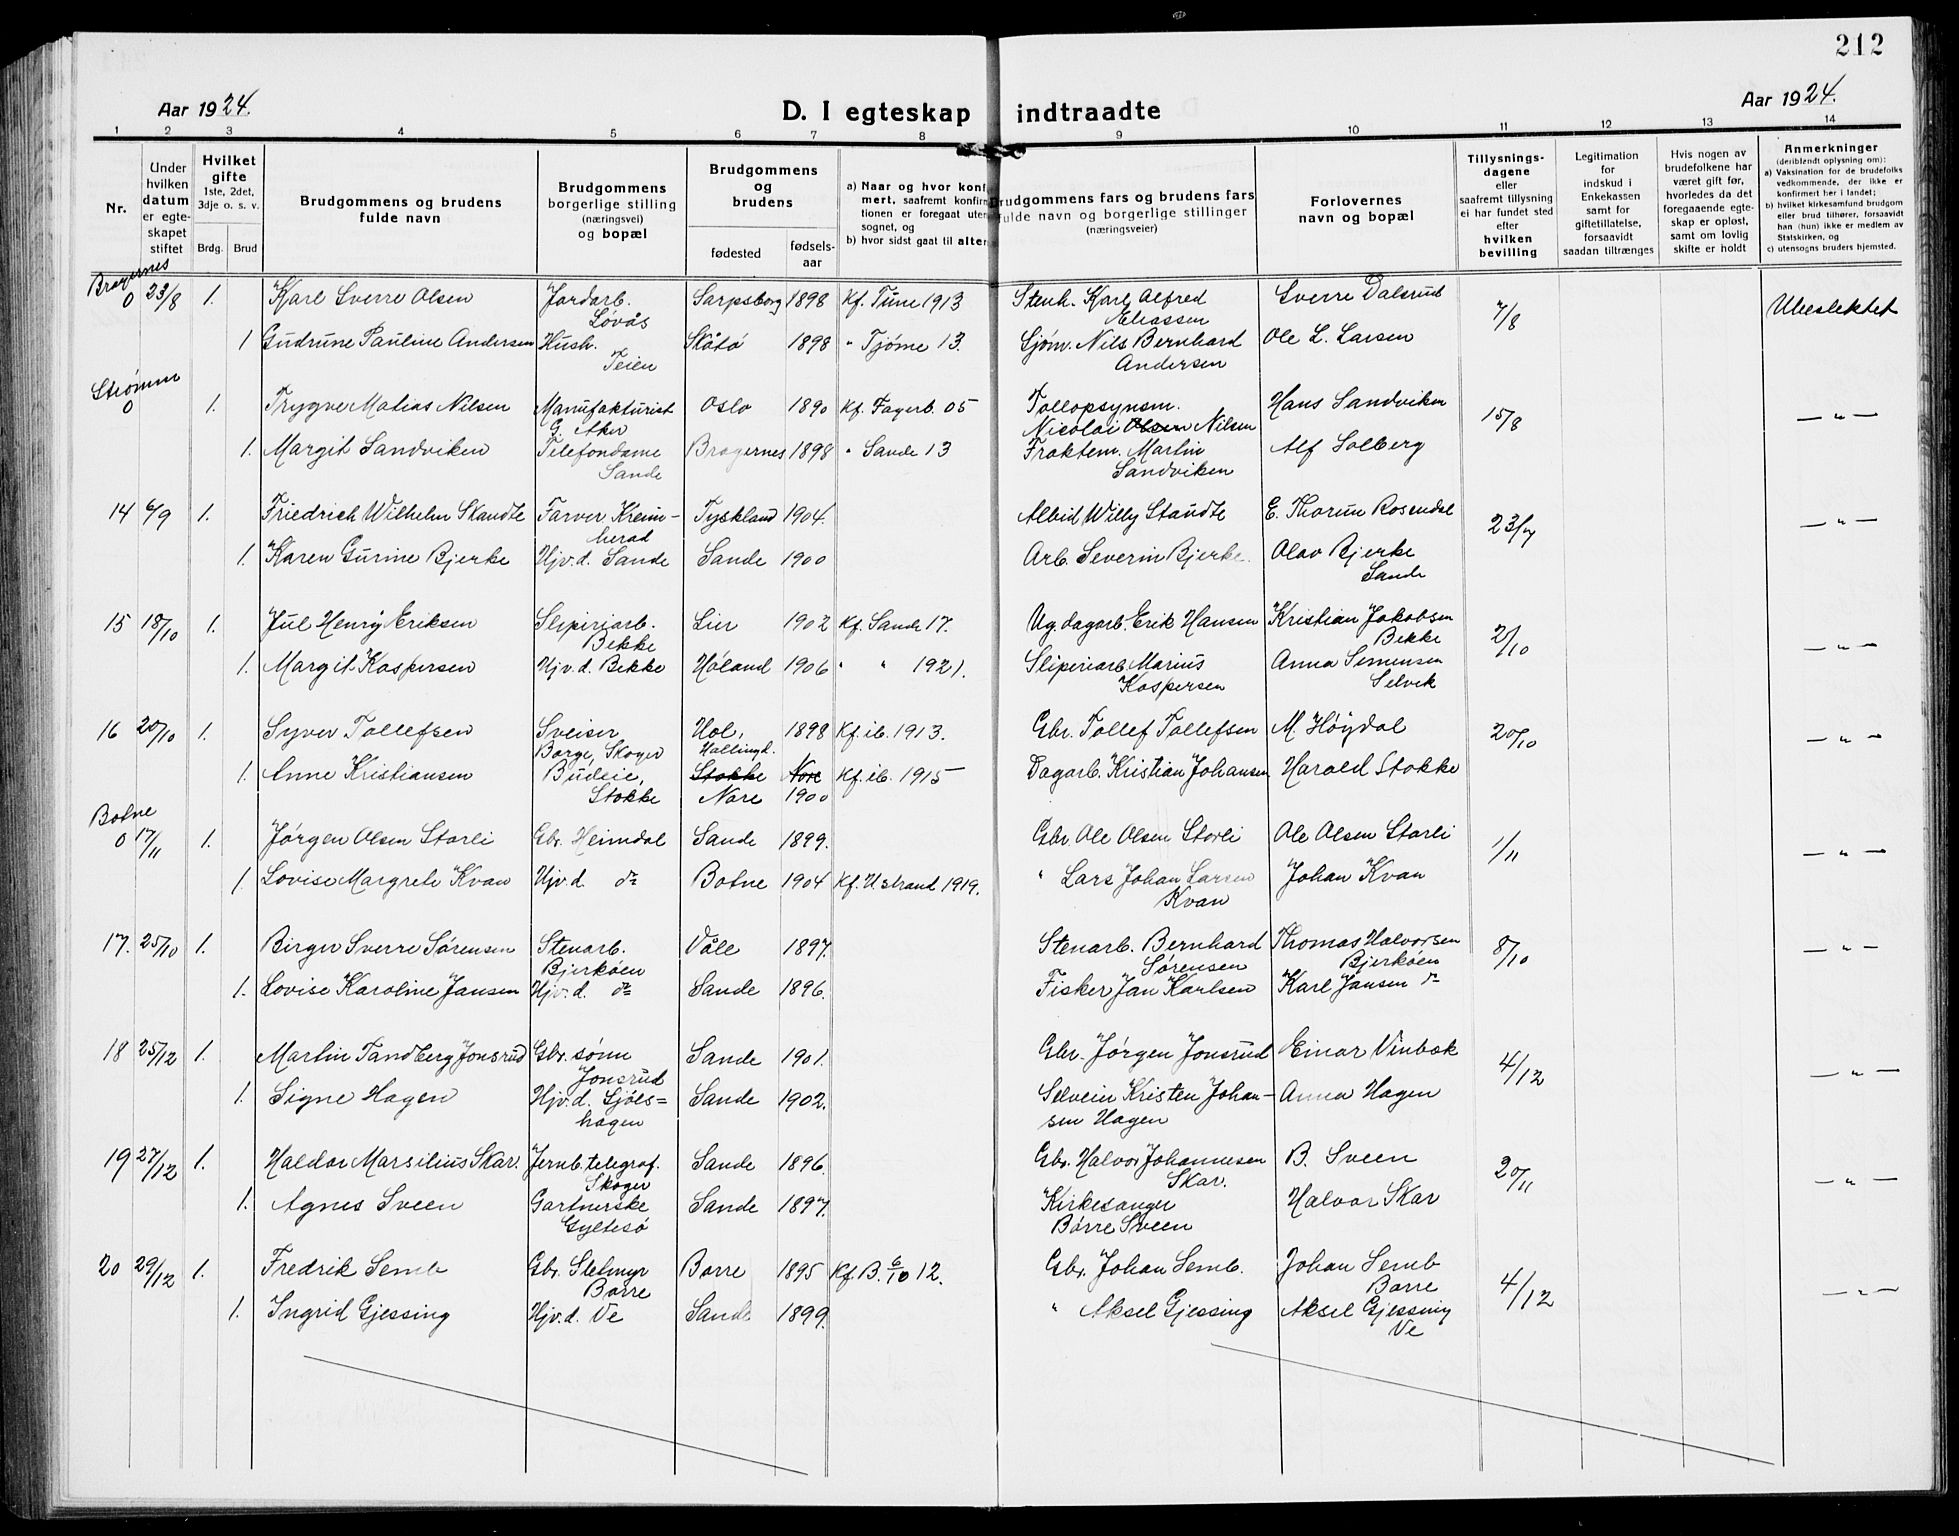 212
Aar 1924.
D. I egteskap indtraadte
Aar 1924.
1 2 3 4 5 6 7 8 9 10 11 12 13 14
Nr.
Under hvilken datum er egteskapet stiftet
Hvilket gifte 1ste, 2det, 3dje o. s. v.
Brdg. Brud
Brudgommens og brudens fulde navn
Brudgommens borgerlige stilling (næringsvei) og bopæl
Brudgommens og brudens
fødested
fødsels-aar
a) Naar og hvor konf
mert, saafremt konfir
tionen er foregaat uten
sognet, og
b) hvor sidst gaat til alter
rudgommens fars og brudens fars
fulde navn og borgerlige stillinger
(næringsveier)
Forlovernes navn og bopæl
Tillysnings-dagene eller saafremt tillysning ei har fundet sted efter hvilken bevilling
Legitimation for indskud i Enkekassen samt for giftetillatelse, forsaavidt saadan tiltrænges
Hvis nogen av brudefolkene har været gift før, hvorledes da det foregaaende egteskap er opløst, samt om lovlig skifte er holdt
Anmerkninger
(deriblendt oplysning om):
a) Vaksination for de brudefolks vedkommende, der ikke er konfirmert her i landet;
b) hvilket kirkesamfund brudgom eller brud tilhører, forsaavidt han (hun) ikke er medlem av Statskirken, og
c) utensogns bruders hjemsted.
Bragernes
0 23/8 1. Karl Sverre Olsen Jordarb. Sarpsborg 1898 Kf. Tune 1913 Stenh. Karl Alfred Sverre Dalsrud 7/8 Ubeslektet
Løvås Eliassen
1 Gudrune Pauline Andersen Hush. Skåtø 1898 " Tjøme 13. Sjøm. Nils Bernhard Ole L. Larsen
Teien Andersen
Strømm
0 1. Trygve Matias Nilsen Manufakturist Oslo 1890 Kf. Fagerb. 05 Tollopsynsm. Hans Sandviken 15/8 — " —
G. Aker Nicolai Olsen Nilsen
1. Margit Sandviken Telefondame Bragernes 1898 " Sande 13 Fraktem. Martin Alf Solberg
Sande Sandviken
14 6/9 1. Friedrich Wilhelm Skaudte Farver Krem- Tyskland 1904. Albid Willy Staudte E. Thorun Rosendal 23/7 — " —
herad
1. Karen Gurine Bjerke Hjv. d. Sande Sande 1900 Arb. Severin Bjerke. Olav Bjerke
Sande
15 18/10 1. Jul Henry Eriksen Sliperiarb. Lier 1902 Kf. Sande 17. Ug. dagarb. Erik Hansen Kristian Jakobsen 2/10 — " —
Bekke Bekke
1. Margit Kaspersen Hjv. d. Bekke Høland 1906 " " 1921. Sliperiarb. Marius Anna Simensen
Kaspersen Selvik
16 20/10 1. Syver Tollefsen Sveiser Hol, 1898 Kf. ib. 1913. Gbr. Tollef Tollefsen M. Høydal 20/10 — " —
Borge, Skoger Hallingd.
1. Anne Kristiansen Budeie, Stokke Nore Kf. ib. 1915 Dagarb. Kristian Johansen Harald Stokke
Stokke Nore 1900
Botne
0 17/11 1. Jørgen Olsen Storli Gbr. Heimdal Sande 1899. Gbr Ole Olsen Storli Ole Olsen Storli 1/11 — " —
1. Lovise Margrete Kvan Hjv. d. do Botne 1904 Kf. Ustrand 1919. " Lars Johan Larsen Johan Kvan
Kvan
17. 25/10 1. Birger Sverre Sørensen Stenarb. Våle 1897. Stenarb. Bernhard Thomas Halvorsen 8/10 — " —
Bjerkøen Sørensen Bjerkøen
1. Lovise Karoline Jansen Hjv. d. do Sande 1896. Fisker Jan Karlsen Karl Jansen do
18 25/12 1. Martin Tandberg Jonsrud Gbr. sønn Sande 1901. Gbr. Jørgen Jonsrud Einar Vinbæk 4/12 — " —
Jonsrud
1. Signe Hagen Hjv. d. Gjøls= Sande 1902. Selveier Kristen Johan- Anna Hagen
hagen sen Hagen
19 27/12 1. Haldor Marsilius Skar. Jernb. telegraf. Sande 1896. Gbr. Halvor Johannesen B. Sveen 20/11 — " —
Skoger Skar.
1. Agnes Sveen Gartnerske Sande 1897. Kirkesanger Halvor Skar
Gyltesø Børre Sveen
20 29/12 1. Fredrik Semb Gbr. Sletmyr Borre 1895 Kf. B. 6/10 12. Gbr. Johan Semb. Johan Semb 4/12 — " —
Borre Borre
1. Ingrid Gjessing Hjv. d. Ve Sande 1899. " Aksel Gjessing Aksel Gjessing
Ve